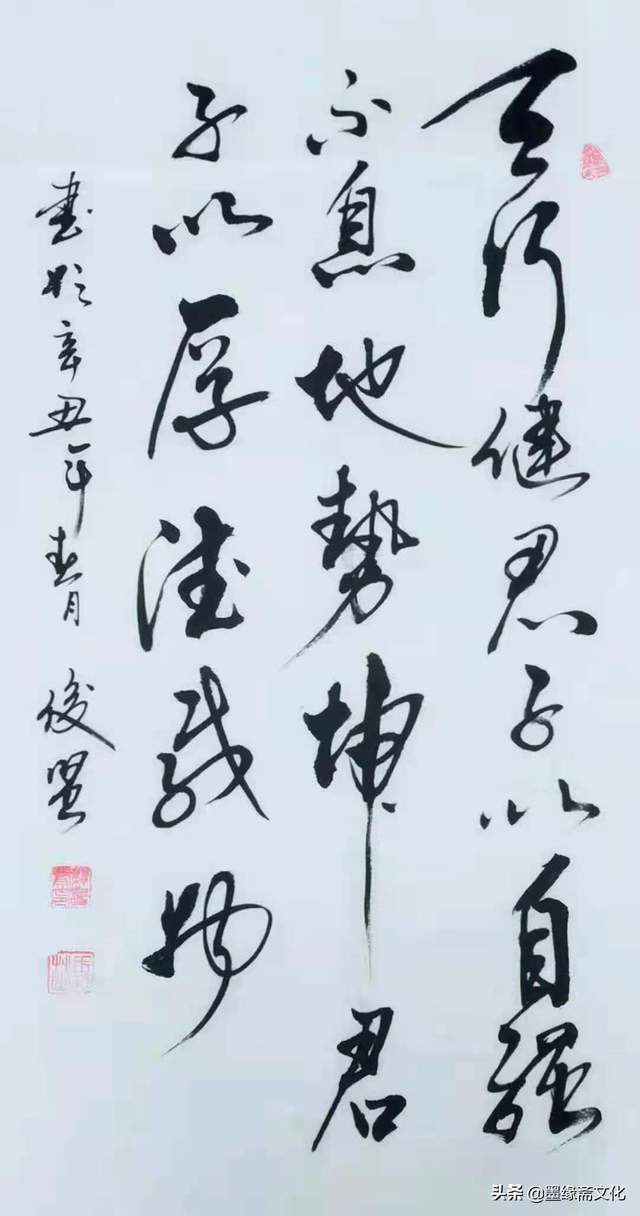 天行健君子以自强
不息地势坤君
子以厚德载物
书于辛丑年春月 俊贤
头条 @墨缘斋文化